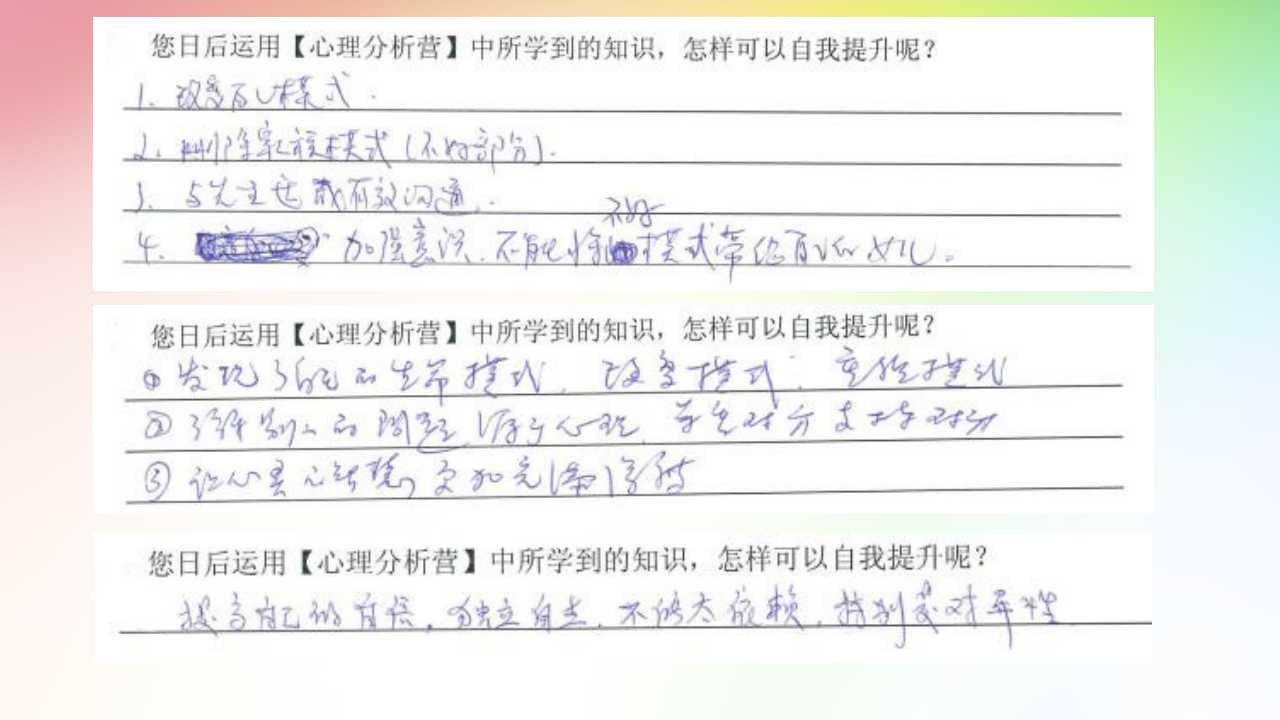 您日后运用【心理分析营】中所学到的知识，怎样可以自我提升呢？
1. 改变自己模式.
2. 删除家族模式(不好部分).
3. 与先生达成有效沟通.
4. 加强意识.不能将不好模式带给自己的女儿。
您日后运用【心理分析营】中所学到的知识，怎样可以自我提升呢？
① 发现了自己的生命模式，改变模式，重论模式
② 了解别人的问题源于心理，学
③ 让心灵更加充满
您日后运用【心理分析营】中所学到的知识，怎样可以自我提升呢？
提高自己的自信，独立自主，不能太依赖，特别是对异性